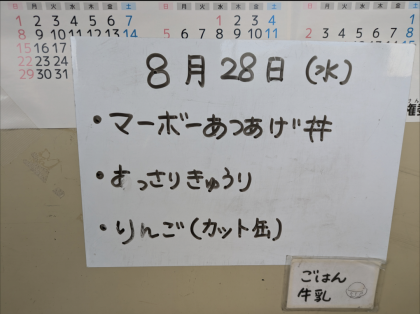 月 火 水 木 金 土
1 2 3 4 5 6 7
8 9 10 11 12 13 14
15 16
22 23
29 30 31
月 火 水 木 金 土
4
11
月 火 水 木 金 土
1
2 3 4 5 6 7 8
8月28日(水)
・マーボーあつあげ丼
・あっさりきゅうり
・りんご(カット缶)
ごはん
牛乳